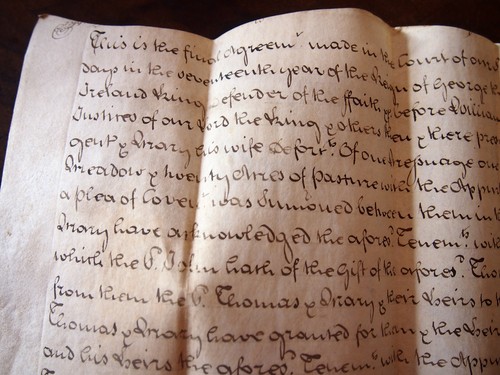 This is the final Agreemt. made in the Court of our S
day in the seventeenth year of the Reign of George th
Ireland King Defender of the ffaith & before William
Justices of our Lord the King & others then & there pres
gent & Mary his wife Deforts. Of one Mesuage one
Meadow & twenty Acres of Pasture with the Appur
a plea of Coven was Sumoned between them in
Mary have acknowledged the afores. Tenemts. with
which the s. John hath of the Gift of the afores. Tho
from them the s. Thomas & Mary & their Heirs to
Thomas & Mary have granted for them & the Heirs
and his Heirs the afores. Tenemts. with the Appur